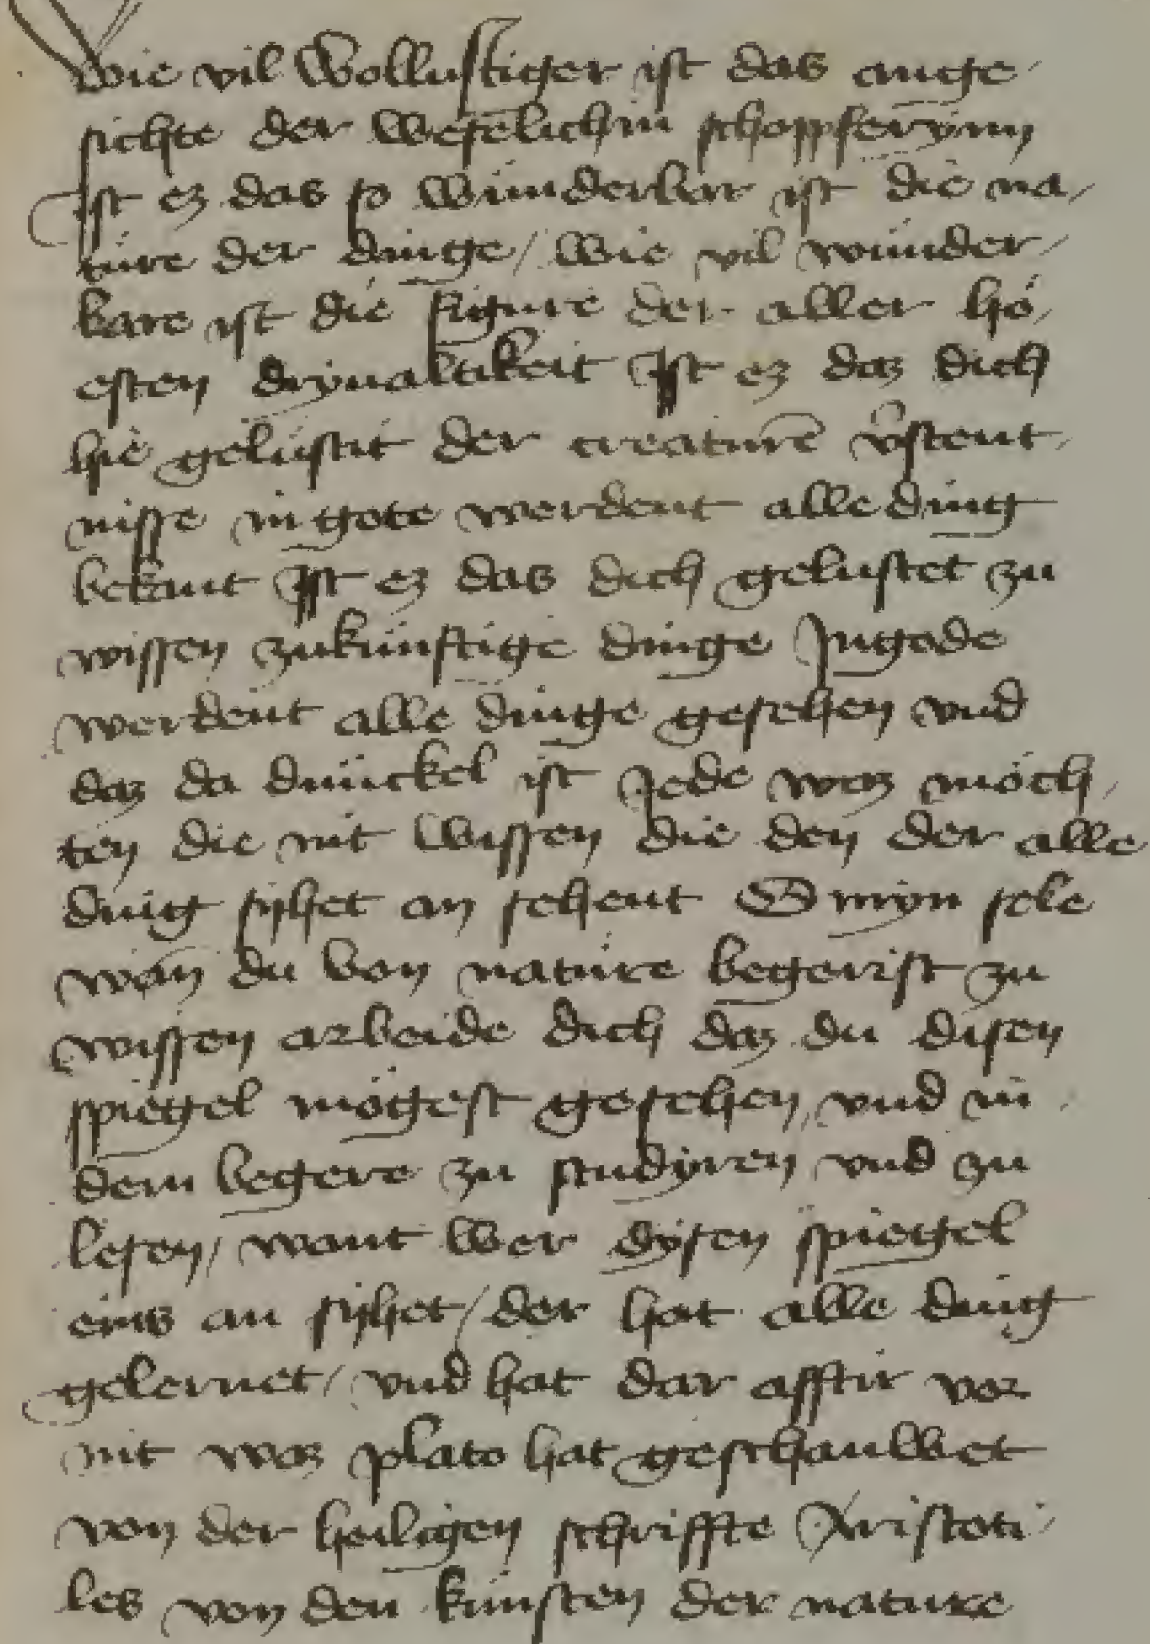 Wie vil Wollustiger ist das ange
sichte der Wesēlichin schoppferynn
Ist ez das so Wunderbar ist die na
ture der dinge / Wie vil wunder
bare ist die figure der aller hö
esten dryualtikeit Ist ez daz dich
hie gelustit der creaturē v̉stent
nisse in gote werdent alle ding
bekant Ist ez das dich gelustet zu
wissen zukunftige dinge In gode
werdent alle dinge gesehen vnd
daz da dunckel ist Jede waz möch
ten die nit Wissen die den der alle
ding sihet an sehent O myn sele
wan̄ du von nature begerist zu
wissen arbeide dich daz du disen
spiegel mögest gesehen vnd in
dem begere zu studyren vnd zu
lesen / want wer dysen spiegel
eins an sihet / der hat alle ding
gelernet / vnd hat dar afftir vor
nit waz plato hat geschauwet
von der heiligen schriffte Aristoti
les von den kunsten der nature